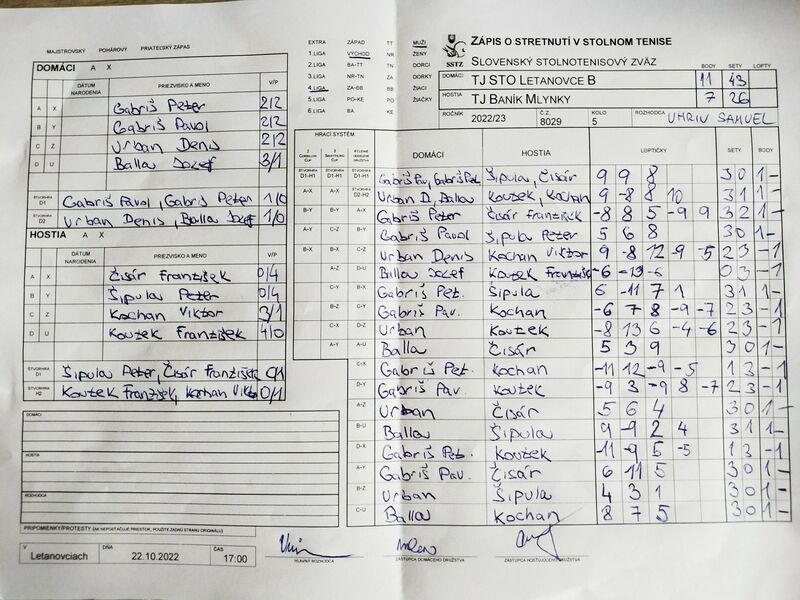 MAJSTROVSKÝ POHÁROVÝ PRIATEĽSKÝ ZÁPAS
DOMÁCI A X
DÁTUM NARODENIA PRIEZVISKO A MENO V/P
A X Gabriš Peter 2/2
B Y Gabriš Pavol 2/2
C Z Urban Denis 2/2
D U Balla Jozef 3/1
ŠTVORHRA D1 Gabriš Pavol, Gabriš Peter 1/0
ŠTVORHRA D2 Urban Denis, Balla Jozef 1/0
HOSTIA A X
DÁTUM NARODENIA PRIEZVISKO A MENO V/P
A X Čisár František 0/4
B Y Šipula Peter 0/4
C Z Kochan Viktor 3/1
D U Koutek František 4/0
ŠTVORHRA Šipula Peter, Čisár František 0/1
ŠTVORHRA H2 Koutek František, Kochan Viktor 0/1
DOMÁCI
HOSTIA
ROZHODCA
PRIPOMIENKY/PROTESTY (AK NEPOSTAČUJE PRIESTOR, POUŽITE ZADNÚ STRANU ORIGINÁLU)
V Letanovciach DŇA 22.10.2022 ČAS 17:00
HLAVNÝ ROZHODCA ZÁSTUPCA DOMÁCEHO DRUŽSTVA ZÁSTUPCA HOSŤUJÚCEHO DRUŽSTVA
EXTRA ZÁPAD TT MUŽI
1. LIGA VÝCHOD NR ŽENY
2. LIGA BA-TT TN DORCI
3. LIGA NR-TN ZA DORKY
4. LIGA ZA-BB BB ŽIACI
5. LIGA PO-KE PO ŽIAČKY
6. LIGA BA KE
SSTZ
ZÁPIS O STRETNUTÍ V STOLNOM TENISE
SLOVENSKÝ STOLNOTENISOVÝ ZVÄZ BODY SETY LOPTY
DOMÁCI TJ STO LETANOVCE B 11 43
HOSTIA TJ BANÍK MLYNKY 7 26
ROČNÍK 2022/23 Č.Z. 8029 KOLO 5 ROZHODCA UHRIN SAMUEL
HRACÍ SYSTÉM DOMÁCI HOSTIA LOPTIČKY SETY BODY
D1-H1 D1-H1 D1-H1 Gabriš Pav, Gabriš Pet. Šipula, Čisár 9 9 8 3 0 1 -
A-X A-X D2-H2 Urban D, Balla Koutek, Kochan 9 -8 8 10 3 1 1 -
B-Y B-Y A-X Gabriš Peter Čisár František -8 8 5 -9 9 3 2 1 -
A-Y C-Z B-Y Gabriš Pavol Šipula Peter 5 6 8 3 0 1 -
B-X B-X C-Z Urban Denis Kochan Viktor 9 -8 12 -9 -5 2 3 - 1
A-Z D-U Balla Jozef Koutek František -6 -13 -6 0 3 - 1
C-Y B-X Gabriš Pet. Šipula 6 -11 7 1 3 1 1 -
B-Z C-Y Gabriš Pav. Kochan -6 7 8 -9 -7 2 3 - 1
C-X D-Z Urban Koutek -8 13 6 -4 -6 2 3 - 1
A-Y A-U Balla Čisár 5 3 9 3 0 1 -
C-X Gabriš Pet. Kochan -11 12 -9 -5 1 3 - 1
D-Y Gabriš Pav. Koutek -9 3 -9 8 -7 2 3 - 1
A-Z Urban Čisár 5 6 4 3 0 1 -
B-U Balla Šipula 9 -9 2 4 3 1 1 -
D-X Gabriš Pet. Koutek -11 -9 5 -5 1 3 - 1
A-Y Gabriš Pav. Čisár 6 11 5 3 0 1 -
B-Z Urban Šipula 4 3 1 3 0 1 -
C-U Balla Kochan 8 7 5 3 0 1 -